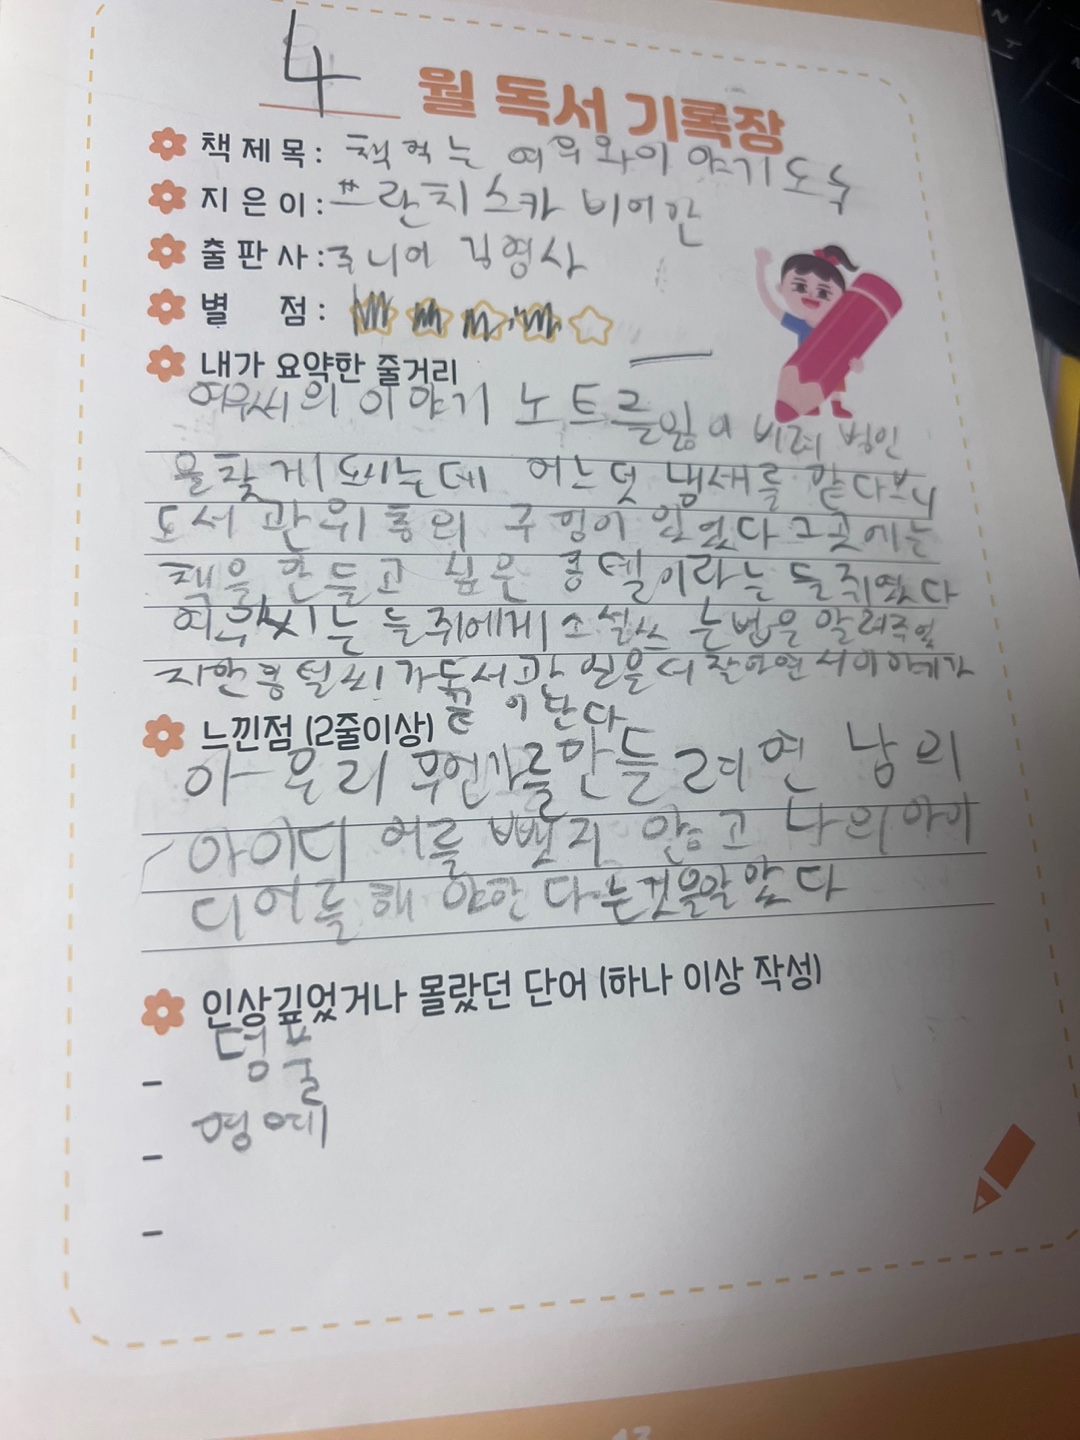 4 월 독서 기록장
책 제 목 : 책 먹는 여우와 이야기 도둑
지 은 이 : 프란치스카 비어만
출 판 사 : 주니어 김영사
별 점 :
내가 요약한 줄거리
여우씨의 이야기 노트를 잃어 버려 범인
을 찾게 되는데 어느덧 냄새를 맡다보니
도서관 위 통의 구멍이 있었다 그곳에는
책을 만들고 싶은 몽텔이라는 들쥐였다
여우씨는 들쥐에게 소설쓰는법을 알려주었
지만 몽털씨가 도서관 일을 더 잘하면서 이야기가
끝이난다
느낀점 (2줄이상)
아 - 우리 무언가를 만들려면 남의
아이디어를 뺏지 않고 나의 아이
디어를 해야한다는것을알았다
인상깊었거나 몰랐던 단어 (하나 이상 작성)
- 덤풀
- 명예
-